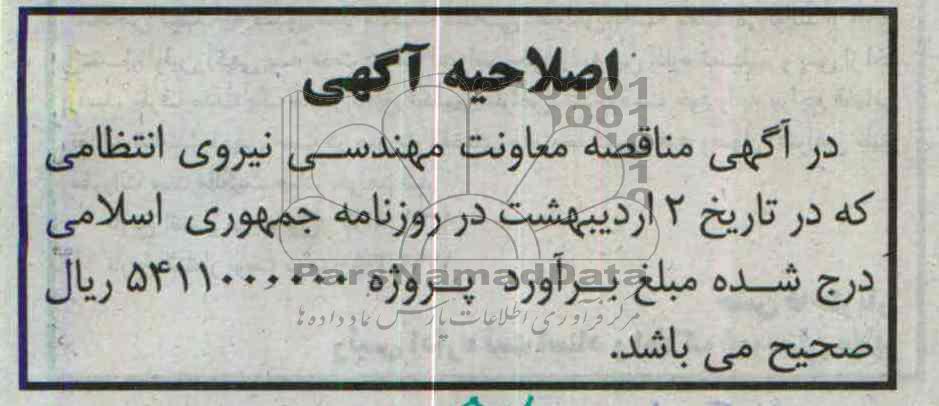 اصلاحیه آگهی
در آگهی مناقصه معاونت مهندسی نیروی انتظامی
که در تاریخ ۲ اردیبهشت در روزنامه جمهوری اسلامی
درج شده مبلغ برآورد پروژه ۵۴۱۱۰۰۰۰۰۰ ریال
صحیح می باشد.
ParsNamadData
مرکز فرآوری اطلاعات پارس نماد داده ها